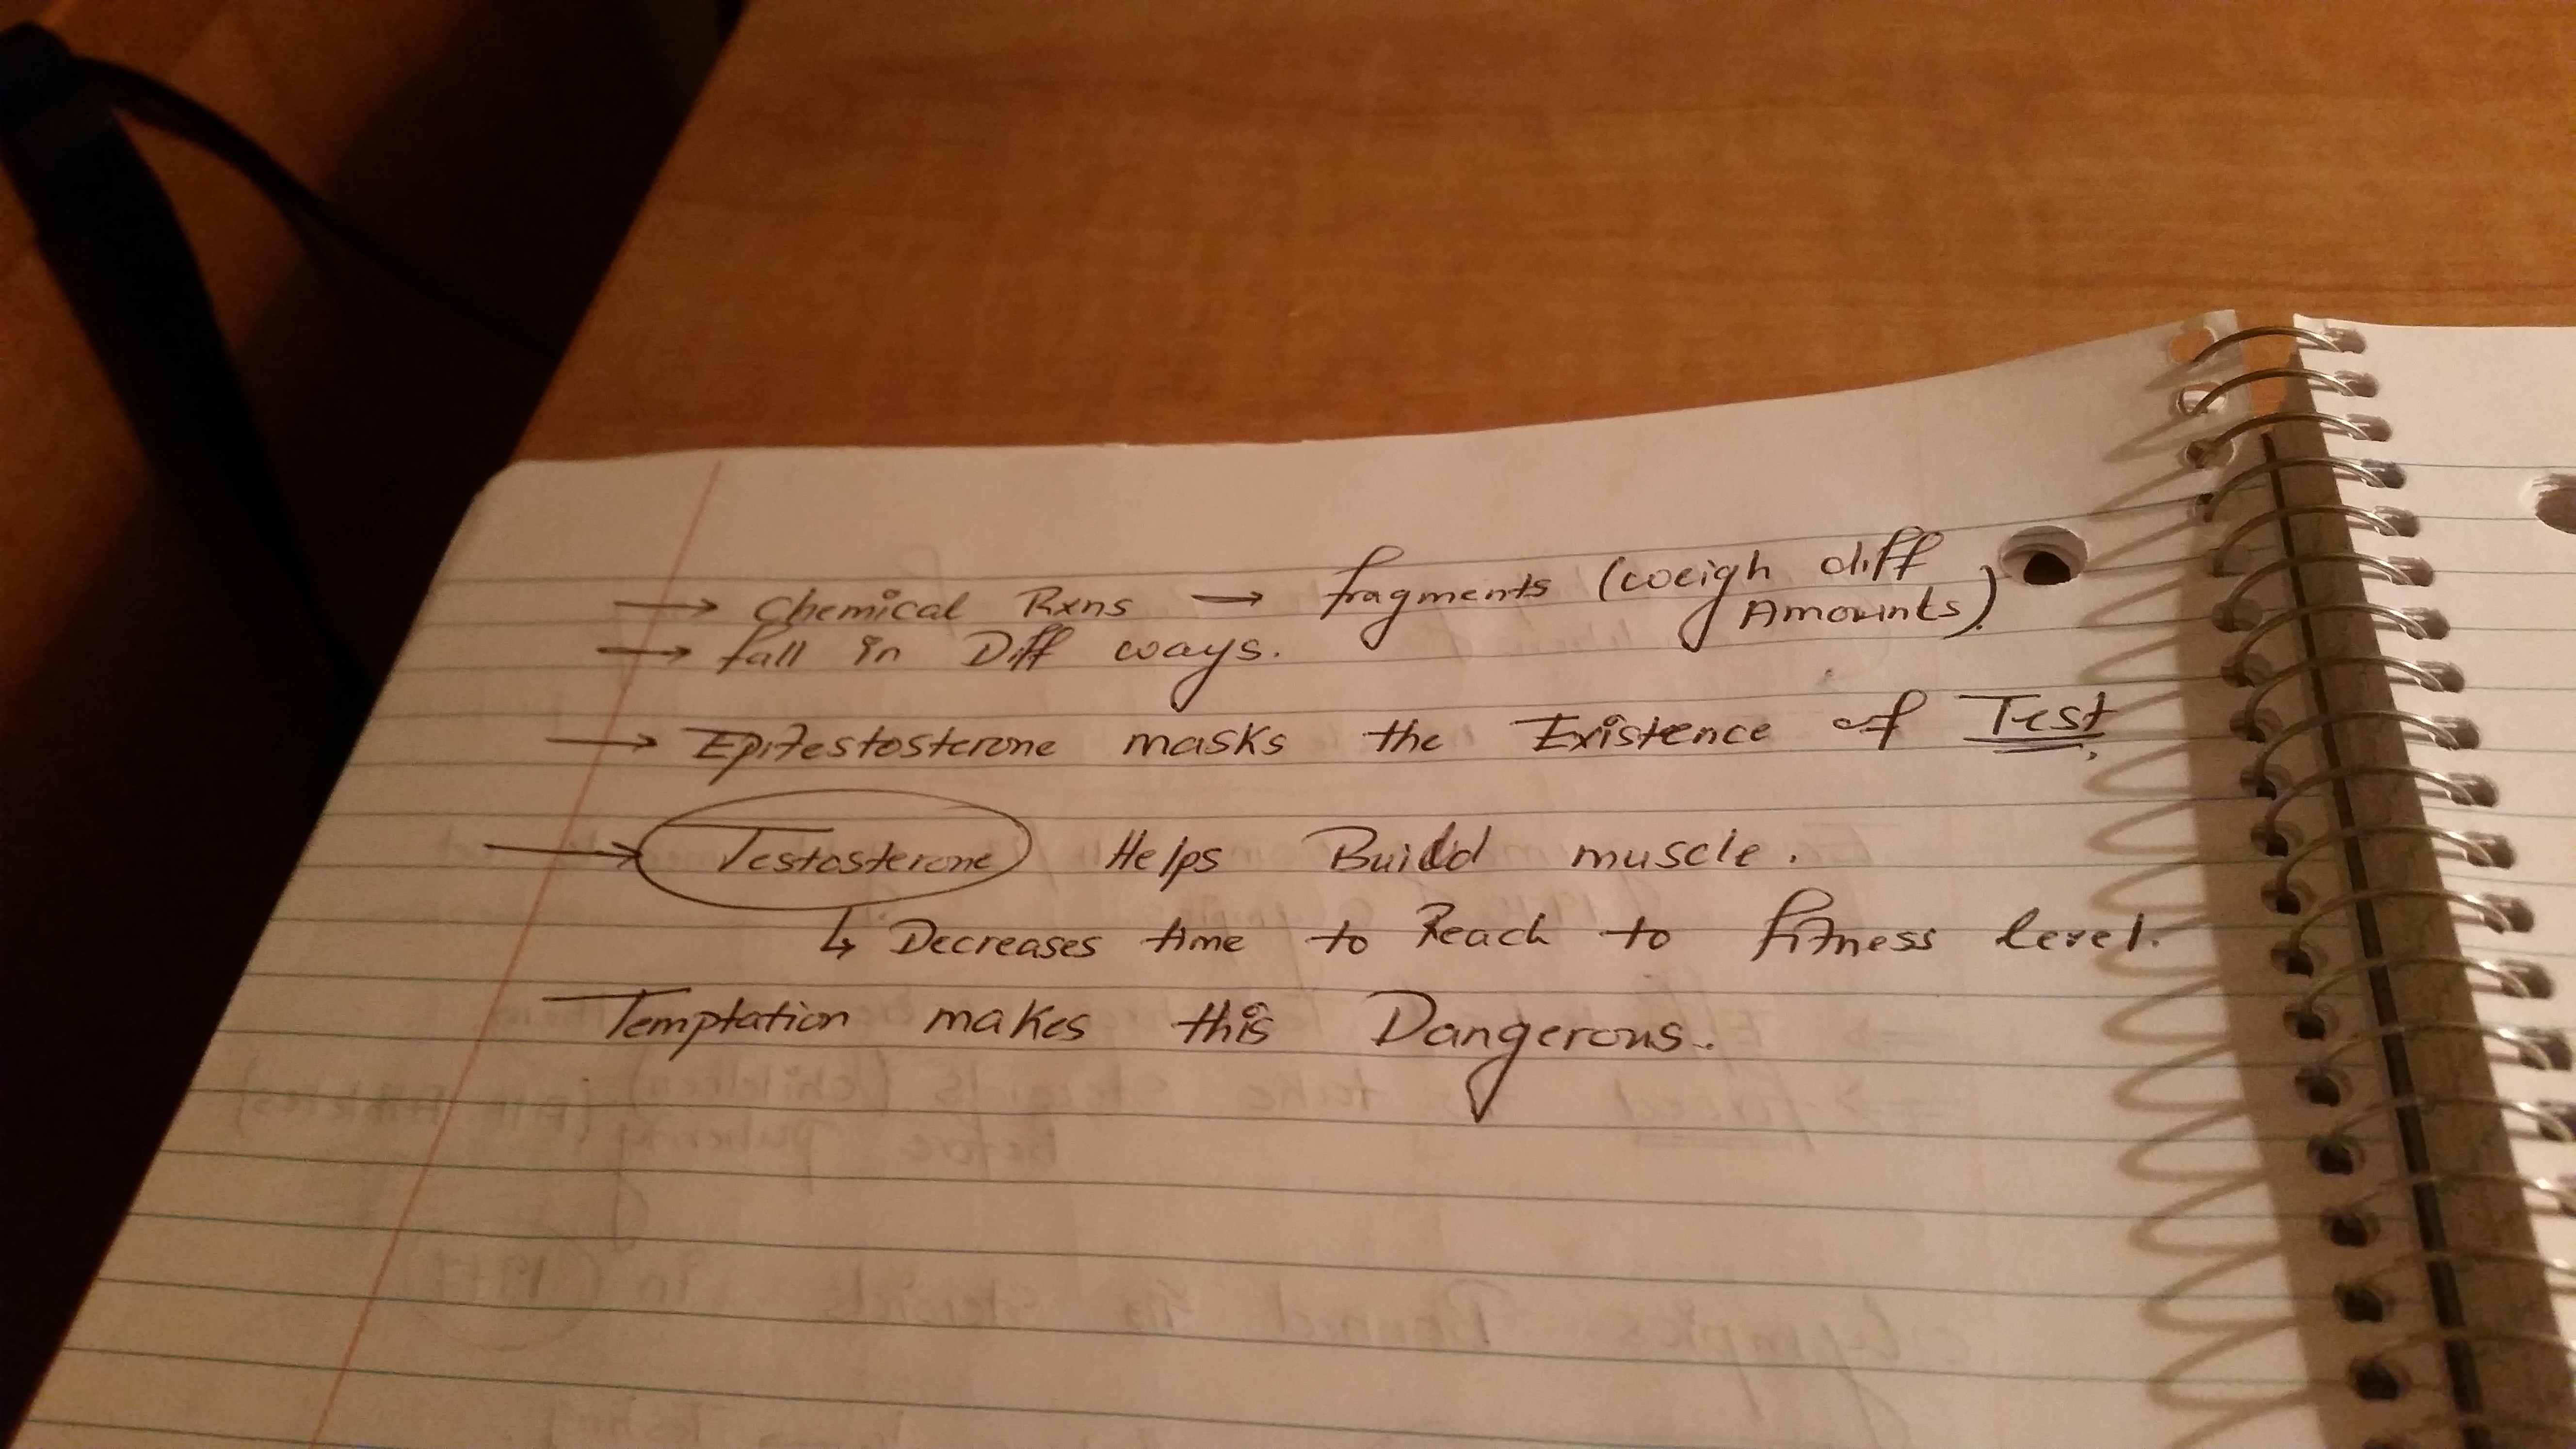 → Chemical Rxns → fragments (weigh diff
Amounts).
→ fall in Diff ways.
→ Epitestosterone masks the Existence of Test.
→ Testosterone Helps Build muscle.
↳ Decreases time to Reach to fitness level.
Temptation makes this Dangerous.